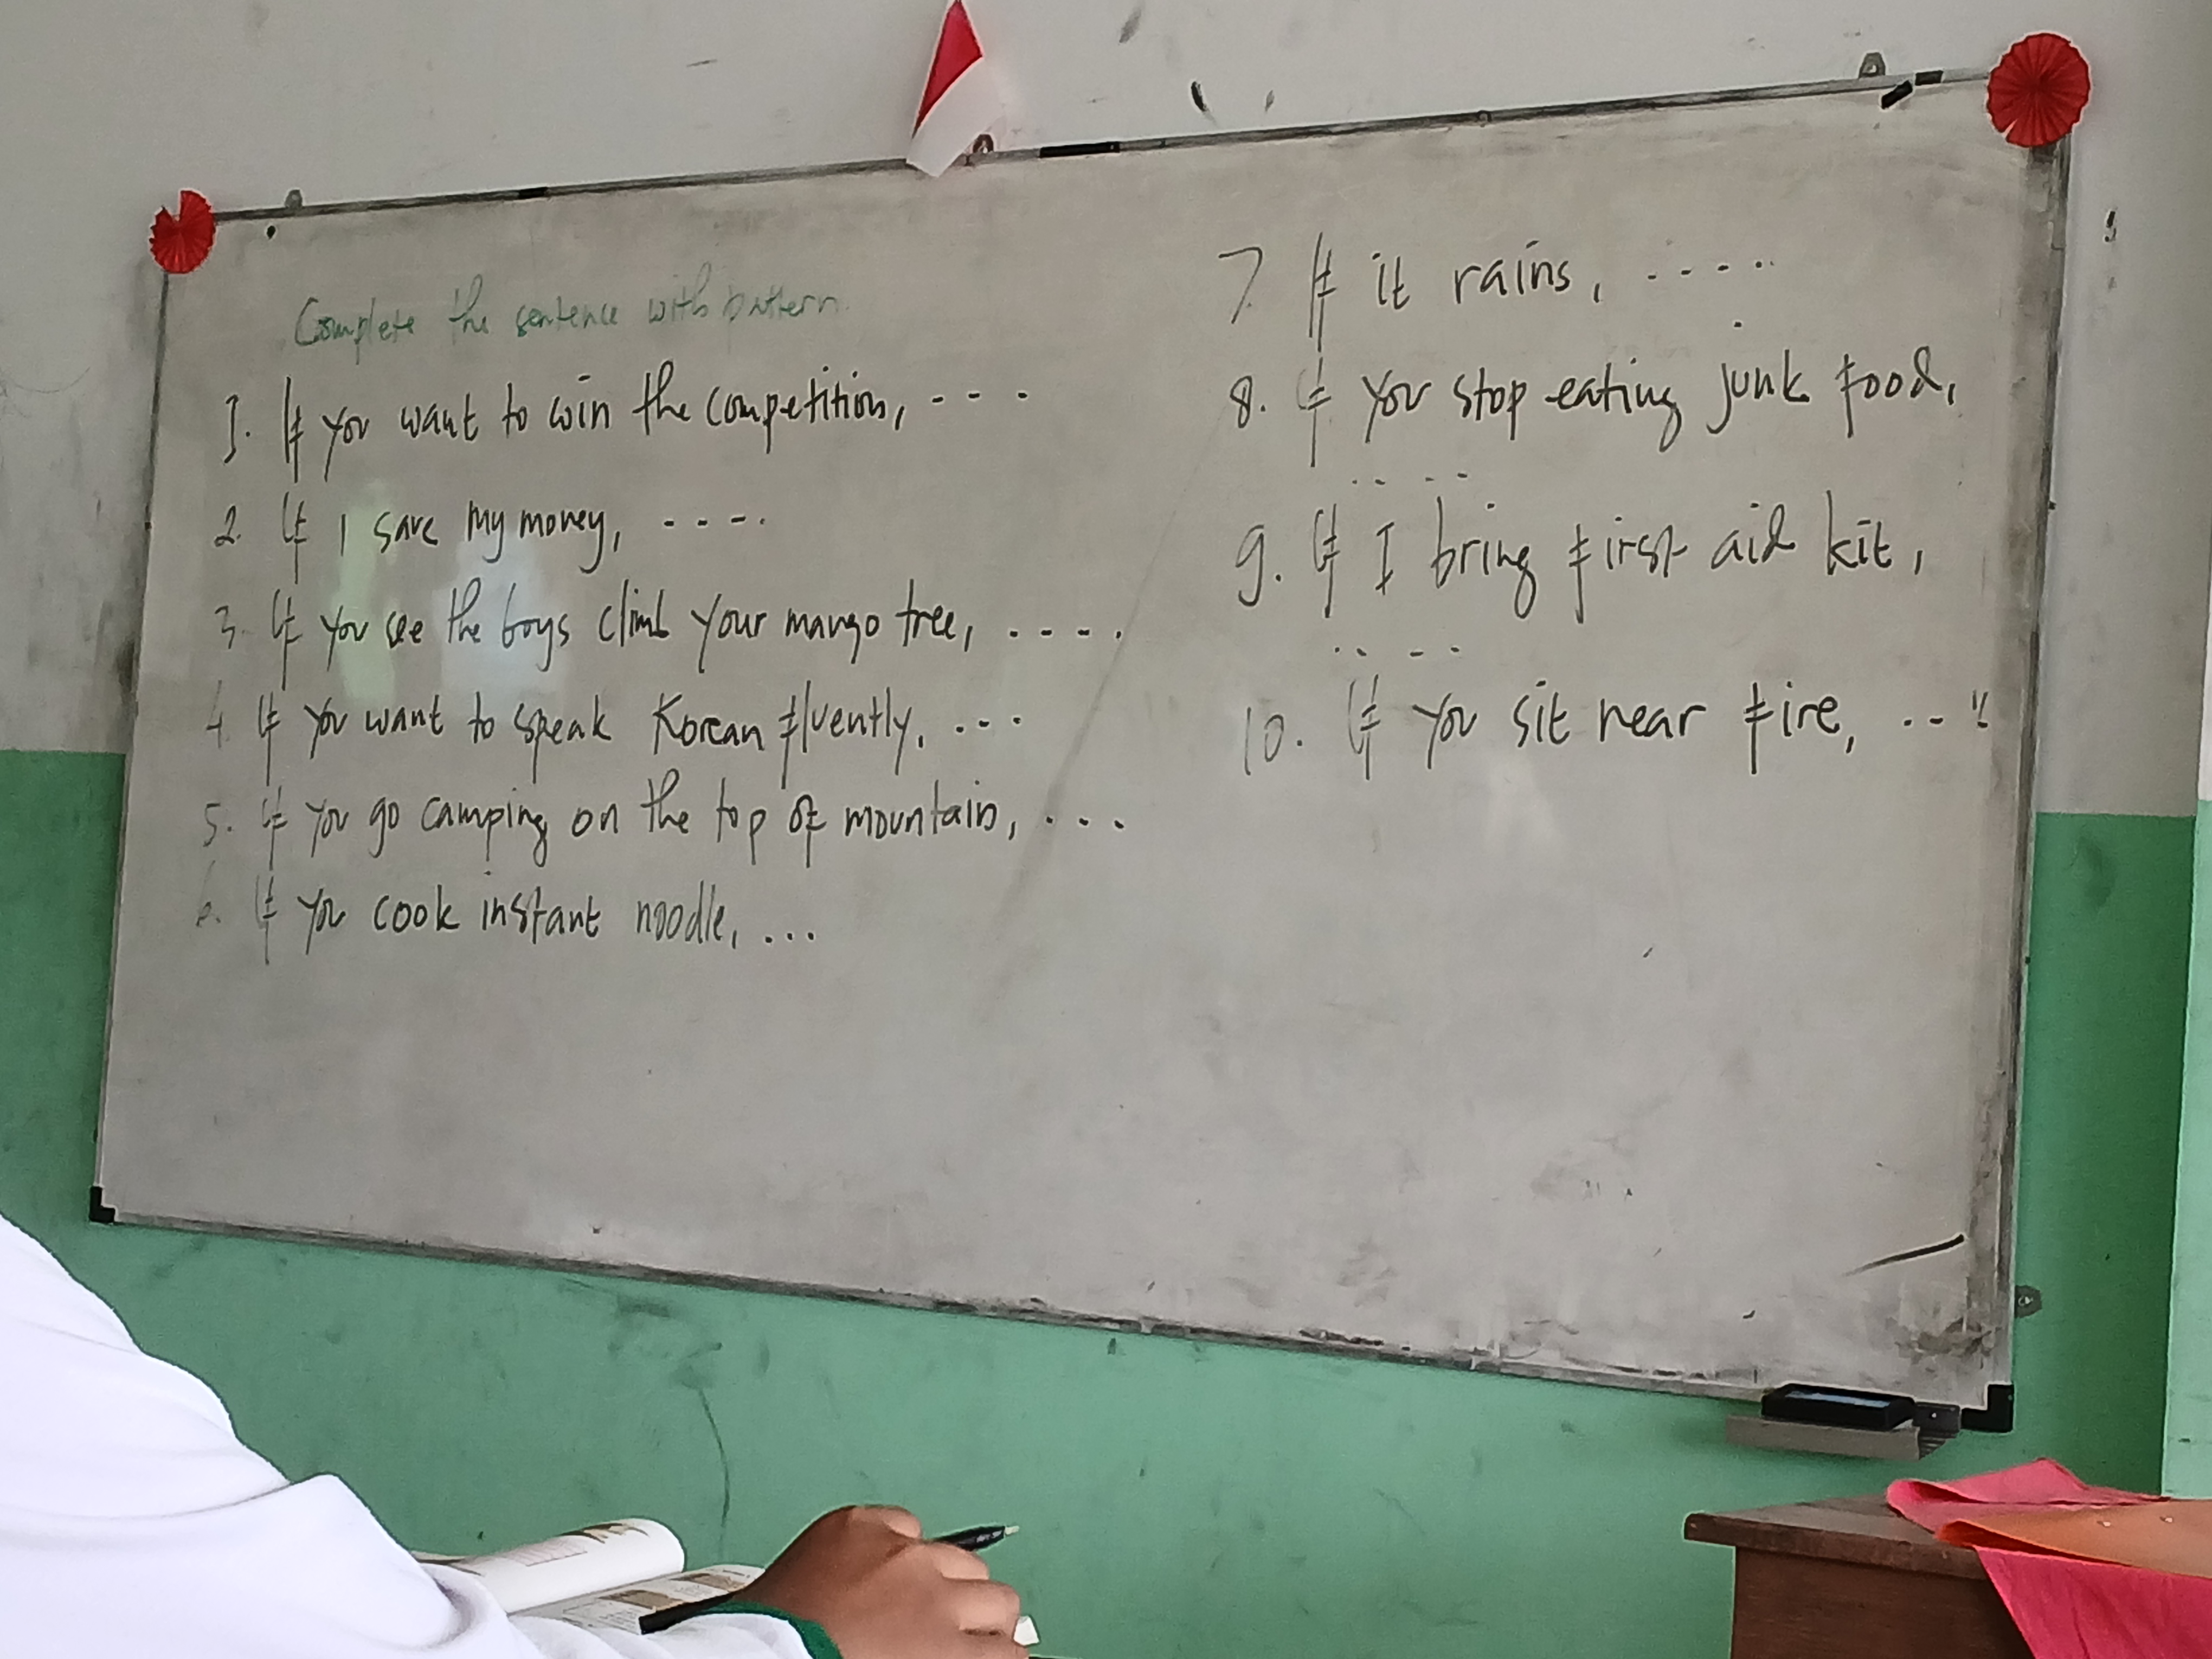 Complete the sentence with pattern.
1. If you want to win the competition, - - -
2. If I save my money, - - - .
3. If you see the boys climb your mango tree, . - - .
4. If you want to speak Korean fluently, . . .
5. If you go camping on the top of mountain, . . .
6. If you cook instant noodle, ...
7. If it rains, . - - . .
8. If you stop eating junk food,
. . - -
9. If I bring first aid kit,
. . - -
10. If you sit near fire, . - - "